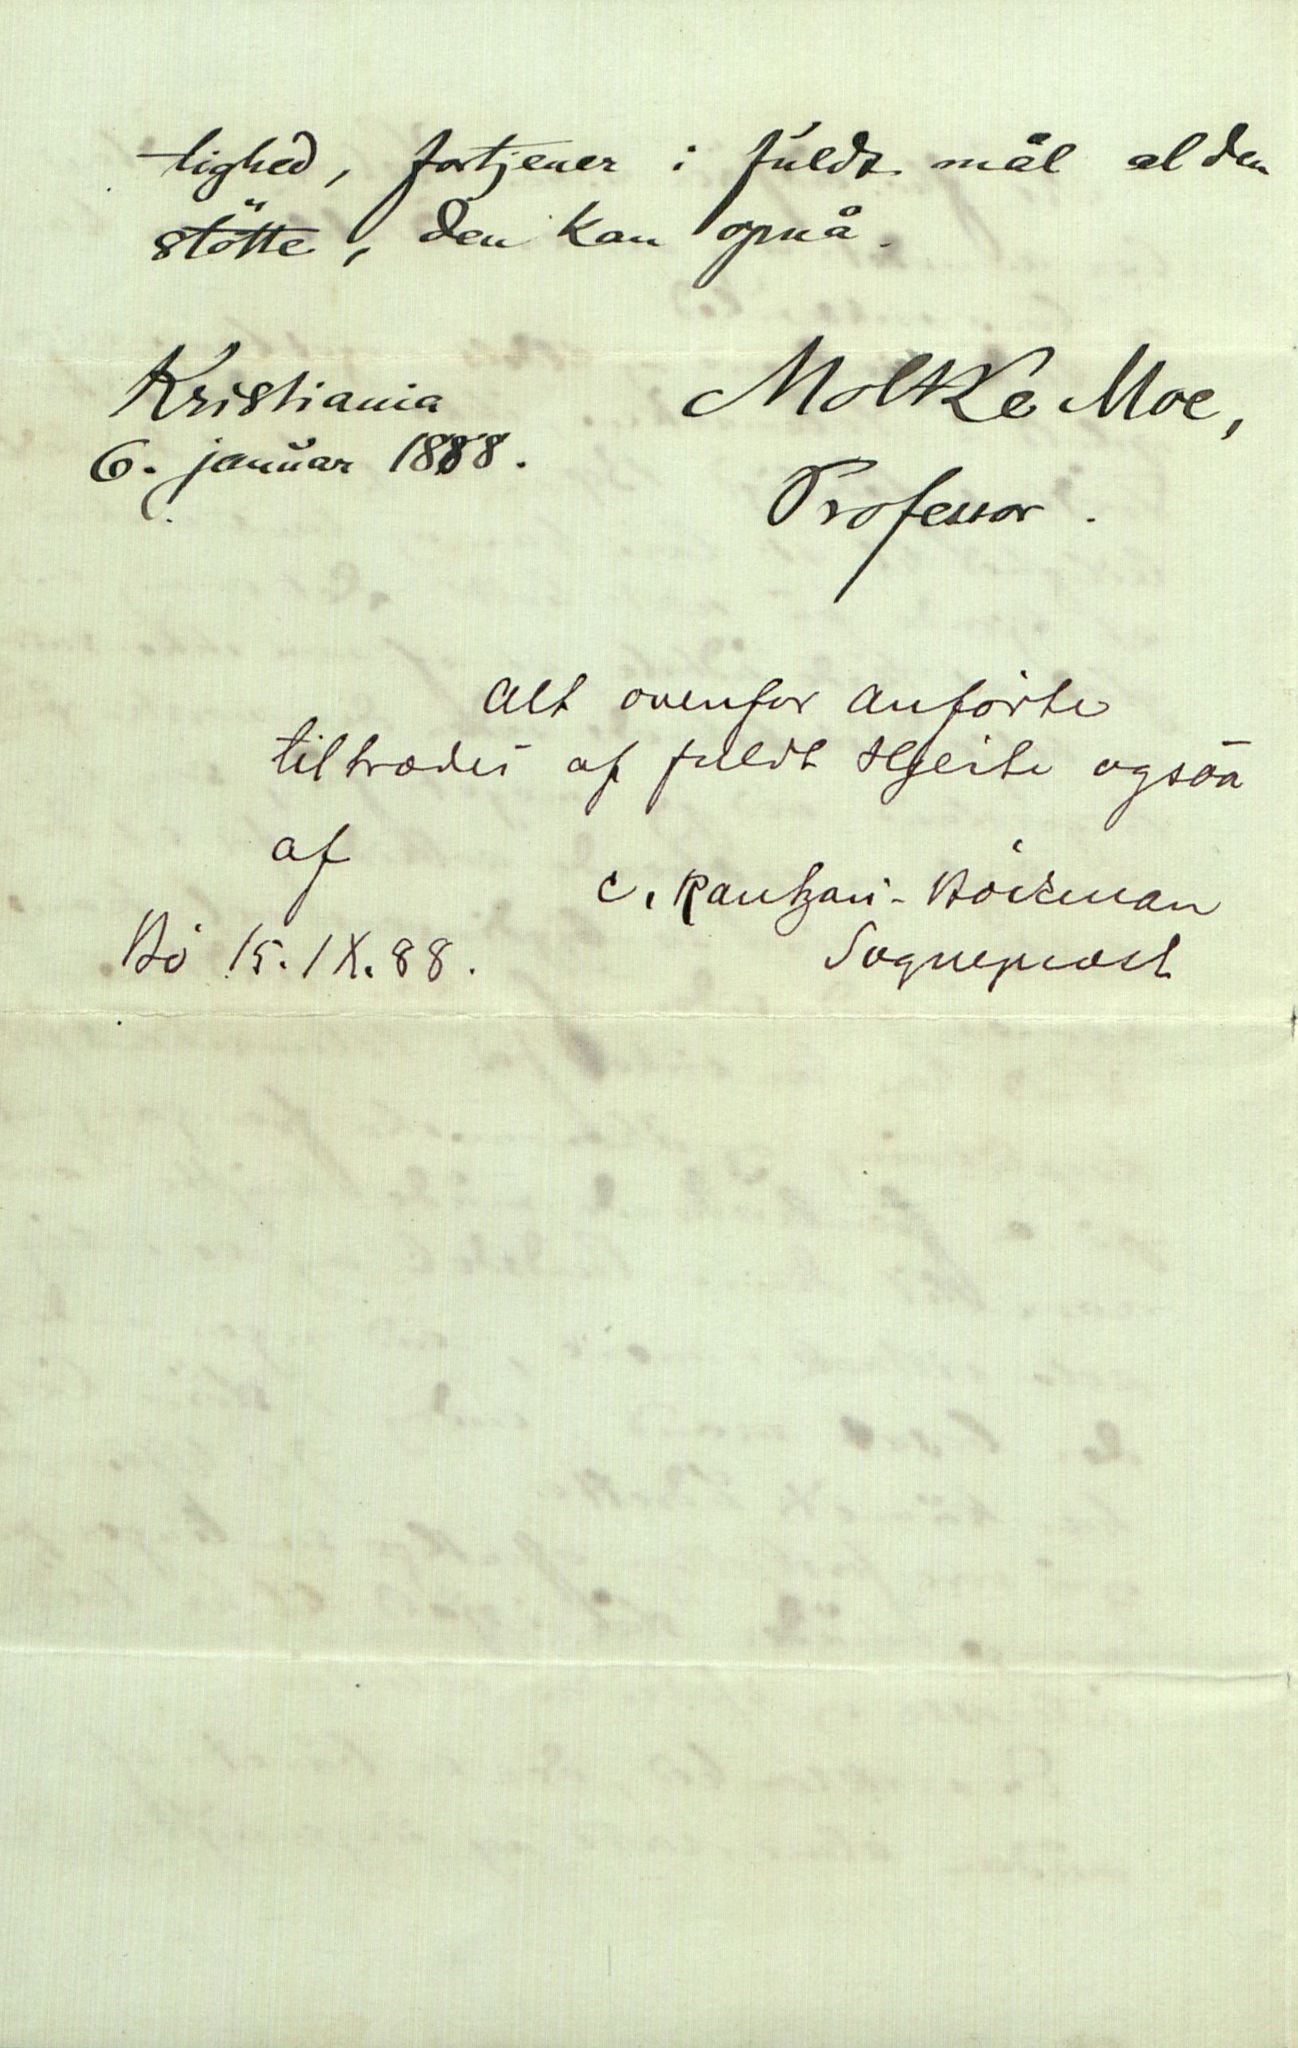 tighed, fortjener i fuldt mål al den
stötte, den kan opnå.
Kristiania
6. januar 1888.
Moltke Moe,
Professor.
Alt ovenfor Anførte
tiltrædes af fuldt Hjerte ogsaa
af
C. Rantzau-Böckman
Bö 15. IX. 88.
Sognepræst